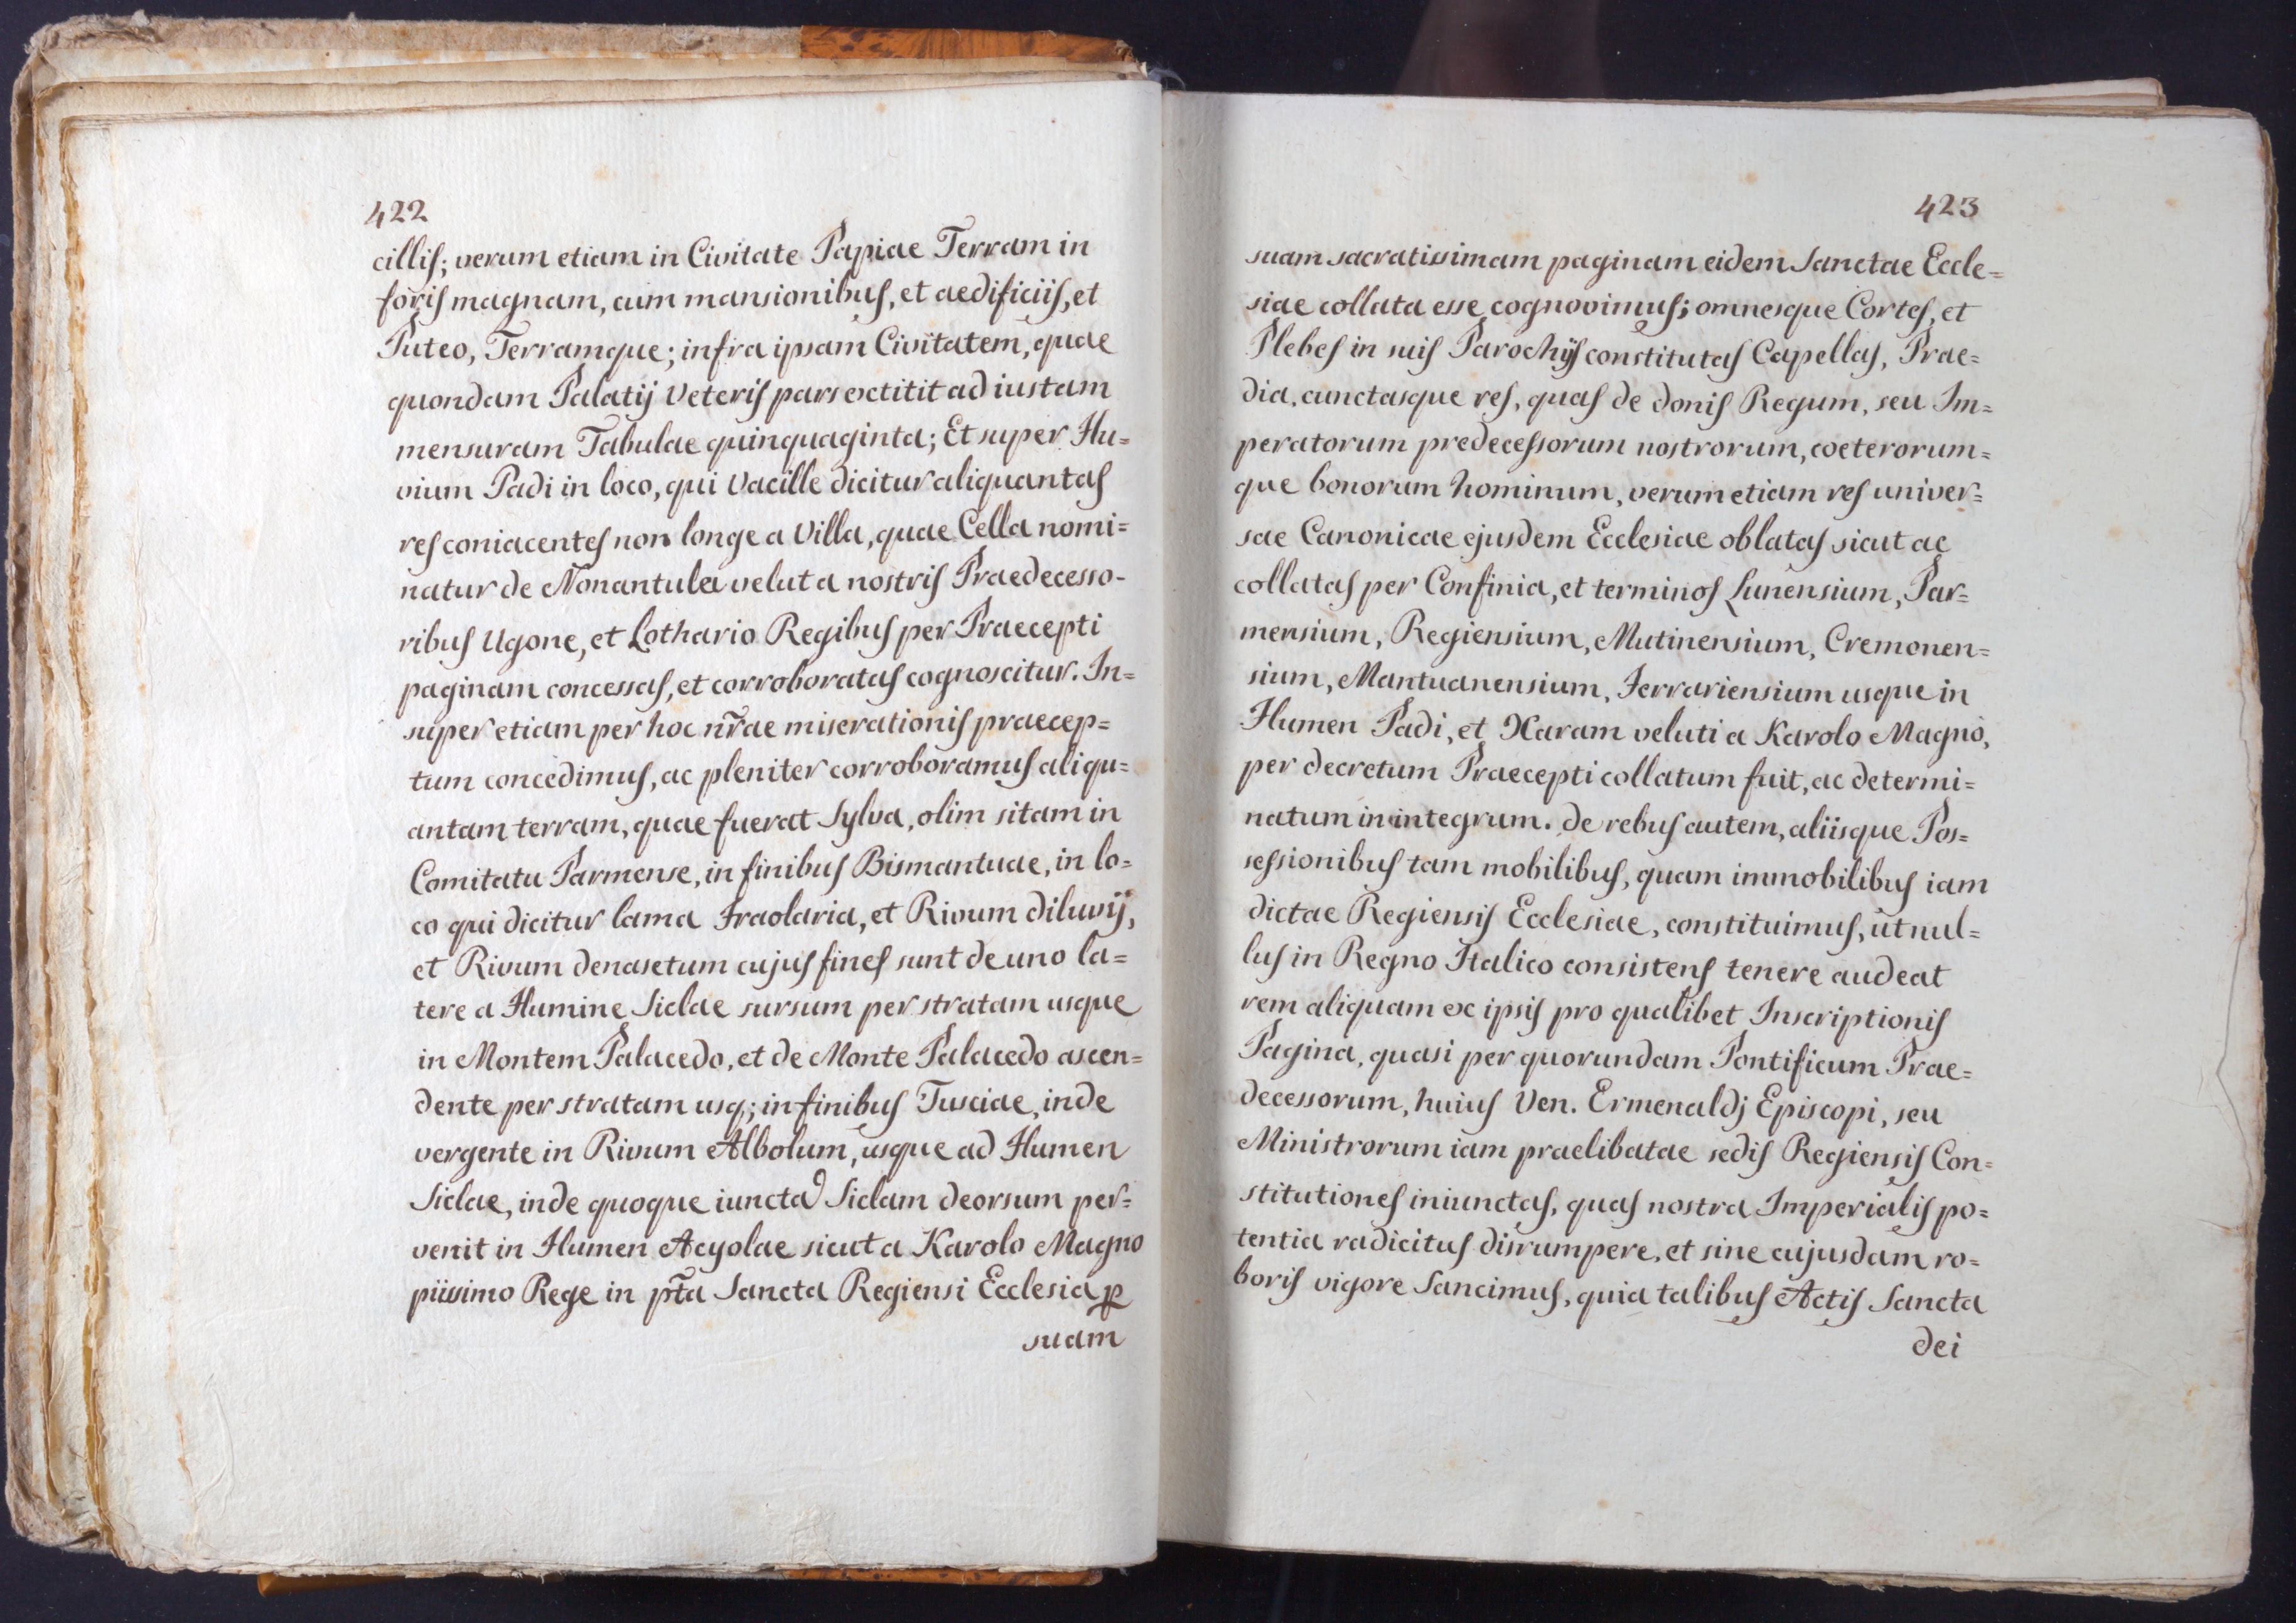 422
cillis; verum etiam in Civitate Papiae Terram in
foris magnam, cum mansionibus, et aedificiis, et
Puteo, Terramque; infra ipsam Civitatem, quae
quondam Palatij Veteris pars extitit ad iustam
mensuram Tabulae quinquaginta; Et super Flu=
vium Padi in loco, qui Vacille dicitur aliquantas
res coniacentes non longe a Villa, quae Cella nomi=
natur de Nonantula velut a nostris Praedecesso-
ribus Ugone, et Lothario Regibus per Praecepti
paginam concessas, et corroboratas cognoscitur. In=
super etiam per hoc nr̃ae miserationis praecep=
tum concedimus, ac pleniter corroboramus aliqu=
antam terram, quae fuerat Sylva, olim sitam in
Comitatu Parmense, in finibus Bismantuae, in lo=
co qui dicitur lama Fraolaria, et Rivum diluvij,
et Rivum denasetum cujus fines sunt de uno la=
tere a Flumine Siclae sursum per stratam usque
in Montem Palacedo, et de Monte Palacedo ascen=
dente per stratam usq; in finibus Tusciae, inde
vergente in Rivum Albolum, usque ad Flumen
Siclae, inde quoque iuncta Siclam deorsum per=
venit in Flumen Acyolae sicut a Karolo Magno
piissimo Rege in pt̃a Sancta Regiensi Ecclesia ꝑ
suam
423
suam sacratissimam paginam eidem Sanctae Eccle=
siae collata esse cognovimus; omnesque Cortes, et
Plebes in suis Parochijs constitutas Capellas, Prae=
dia, cunctasque res, quas de donis Regum, seu Im=
peratorum predecessorum nostrorum, coeterorum=
que bonorum hominum, verum etiam res univer=
sae Canonicae ejusdem Ecclesiae oblatas sicut ac
collatas per Confinia, et terminos Lunensium, Par=
mensium, Regiensium, Mutinensium, Cremonen=
sium, Mantuanensium, Ferrariensium usque in
Flumen Padi, et Xaram veluti a Karolo Magno,
per decretum Praecepti collatum fuit, ac determi=
natum in integrum. de rebus autem, aliisque Pos=
sessionibus tam mobilibus, quam immobilibus iam
dictae Regiensis Ecclesiae, constituimus, ut nul=
lus in Regno Italico consistens tenere audeat
rem aliquam ex ipsis pro qualibet Inscriptionis
Pagina, quasi per quorundam Pontificum Prae=
decessorum, huius Ven. Ermenaldj Episcopi, seu
Ministrorum iam praelibatae sedis Regiensis Con=
stitutiones iniunctas, quas nostra Imperialis po=
tentia radicitus disrumpere, et sine cujusdam ro=
boris vigore Sancimus, quia talibus Actis Sancta
dei